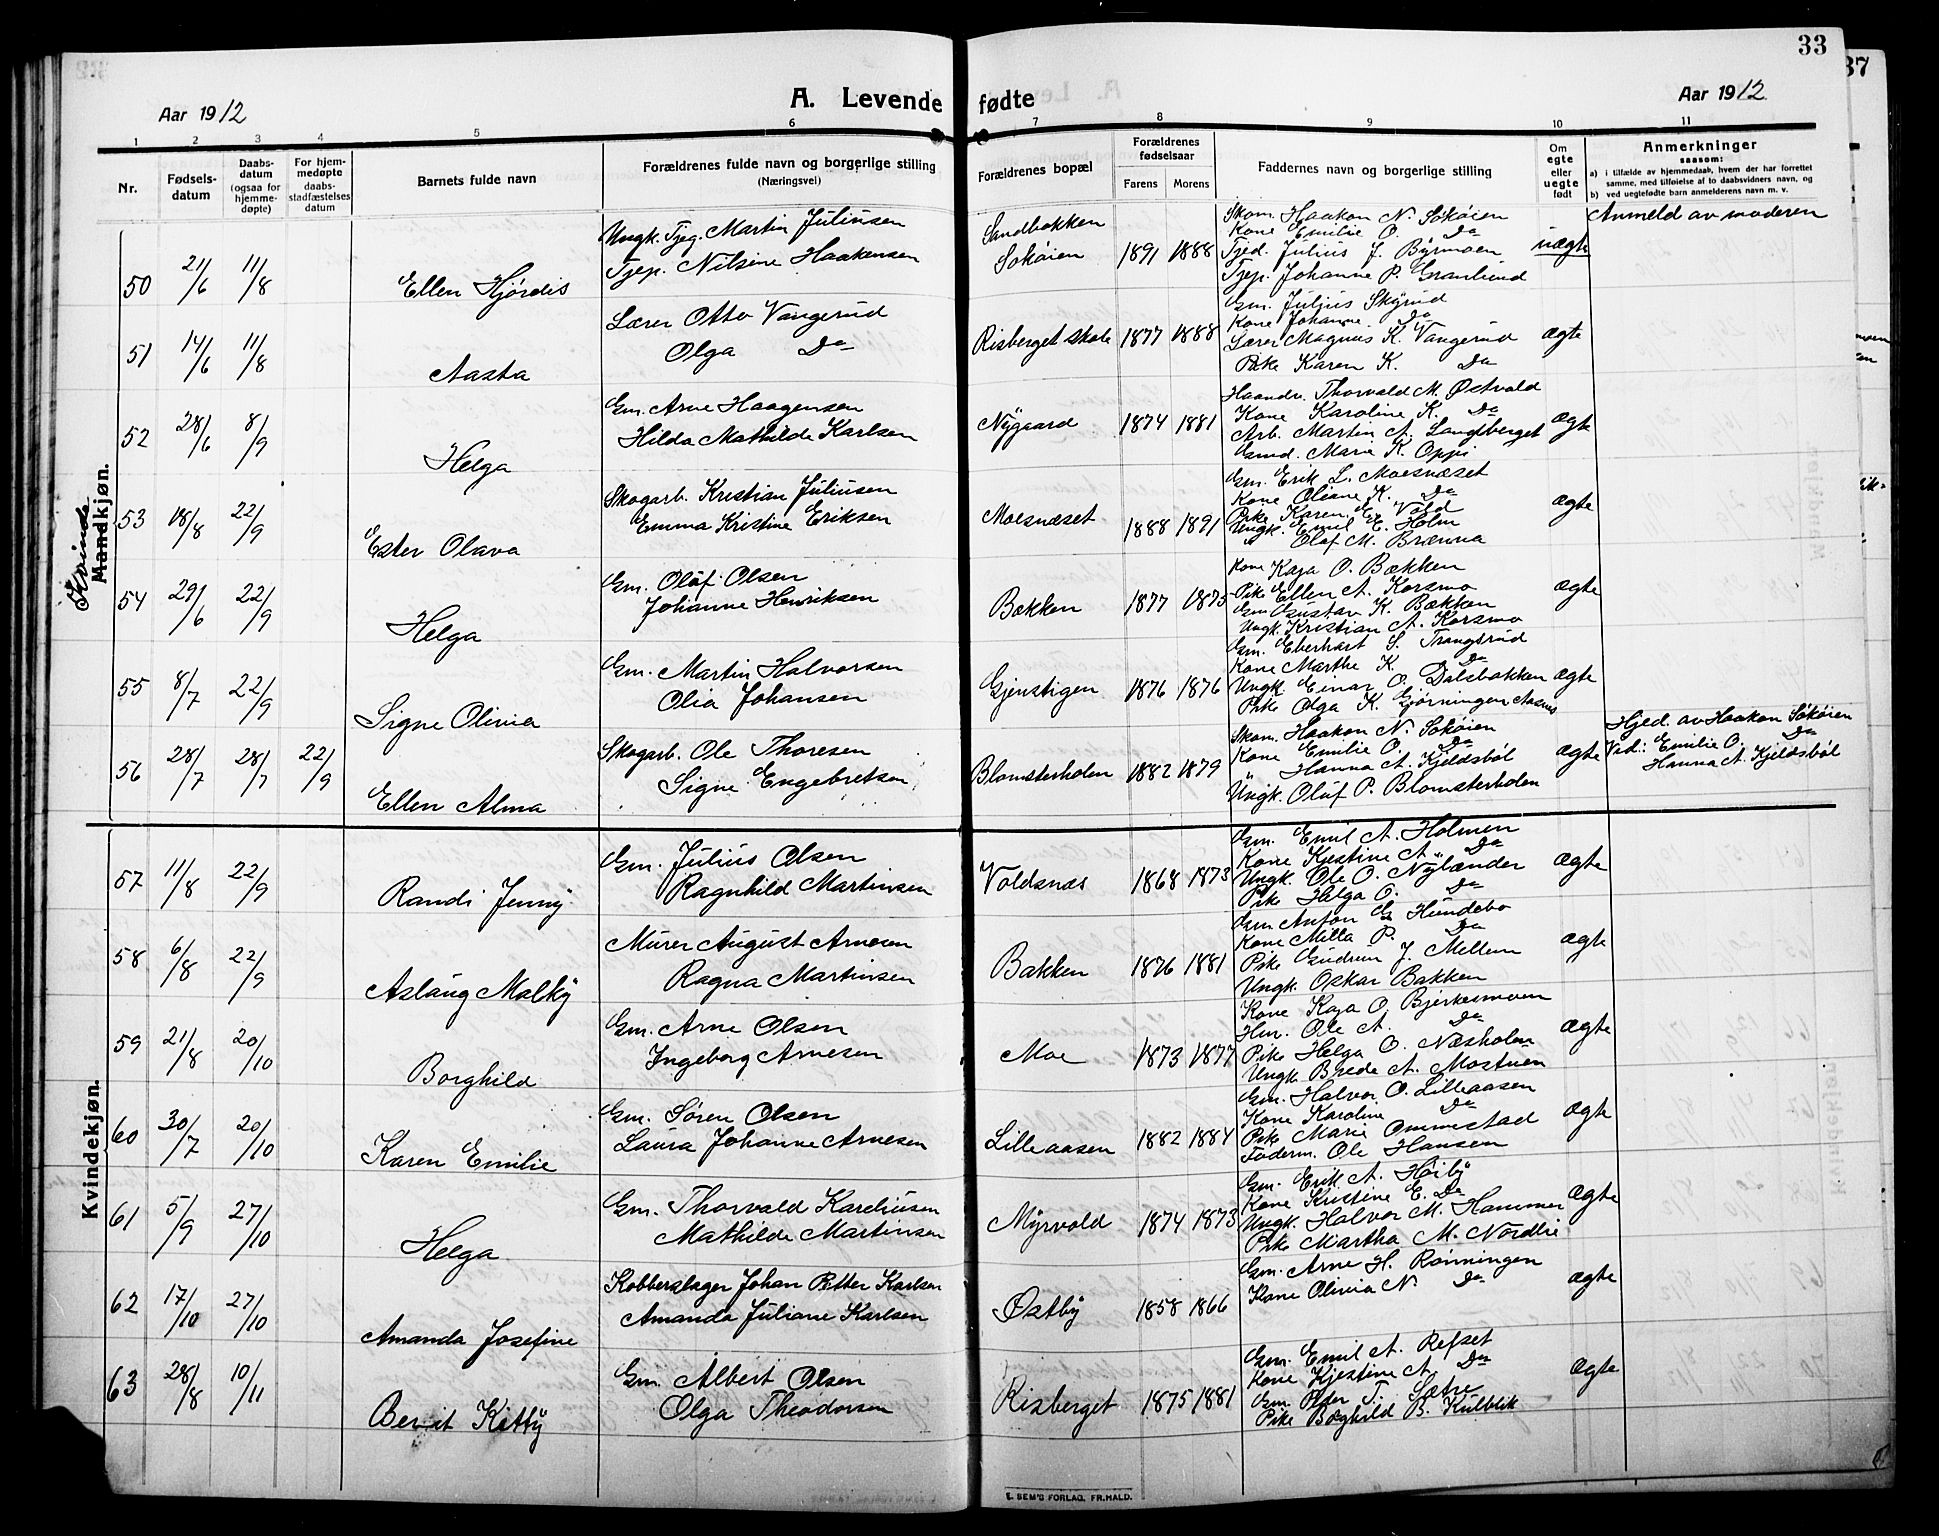 33
37
Aar 1912
A. Levende fødte
Aar 1912
1 2 3 4 5 6 7 8 9 10 11
Nr.
Fødsels-
datum
Daabs-
datum
(ogsaa for
hjemme-
døpte)
For hjem-
medøpte
daabs-
stadfæstelses
datum
Barnets fulde navn
Forældrenes fulde navn og borgerlige stilling
(Næringsvei)
Forældrenes bopæl
Forældrenes
fødselsaar
Farens Morens
Faddernes navn og borgerlige stilling
Om
egte
eller
uegte
født
Anmerkninger
saasom:
a) i tilfælde av hjemmedaab, hvem der har forrettet
samme, med tilføielse af to daabsvidners navn, og
b) ved uegtefødte barn anmelderens navn m. v.
Kvinde
Mandkjøn.
50 21/6 11/8 Ellen Hjørdis
Ungk. Tjeg. Martin Juliusen
Tjep. Nilsine Haakensen
Sandbakken
Sokøien
1891 1888
Skom. Haakon N. Sökøien
Kone Emilie O. Do
Tjed. Julius J. Byrmoen
Tjep. Johanne P. Granlund
uægte
Anmeld av moderen
51 14/6 11/8 Aasta
Lærer Otto Vangerud
Olga Do
Risberget skole 1877 1888
Gm. Julius Skyrud
Kone Johanne Do
Lærer Magnus K. Vangerud
Pike Karen K. Do
ægte
52 28/6 8/9 Helga
Gm. Arne Haagensen
Hilda Mathilde Karlsen
Nygaard 1874 1881
Haandv. Thorvald M. Østvold
Kone Karoline K. Do
Arb. Martin A. Langberget
Gmd. Marie K. Oppi
ægte
53 18/8 22/9 Ester Olava
Skogarb. Kristian Juliusen
Emma Kristine Eriksen
Moesnæset 1888 1891
Gm. Erik L. Moesnæset
Kone Oliane K. Do
Pike Karen E. Vold
Ungk. Emil E. Holm
" Olaf M. Brænna
ægte
54 29/6 22/9 Helga
Gm. Olaf Olsen
Johanne Henriksen
Bækken 1877 1875
Kone Kaja O. Bækken
Pike Ellen A. Korsmo
Gm Gustav K. Bækken
Ungk. Kristian A. Korsmo
ægte
55 8/7 22/9 Signe Olivia
Gm. Martin Halvorsen
Olia Johansen
Gjenstigen 1876 1876
Gm. Eberhart S. Trangsrud
Kone Marthe K. Do
Ungk. Einar O. Dalsbakken
Pike Olga K. Gjørningen Aasnes
ægte
56 28/7 28/7 22/9 Ellen Alma
Skogarb. Ole Thoresen
Signe Engebretsen
Blomsterholen 1882 1879
Skom. Haakon N. Sokøien
Kone Emilie O. Do
" Hanna A. Kjeldsbøl
Ungk. Oluf P. Blomsterholen
ægte
Hjed. av Haakon Sökøien
Vid.: Emilie O. Do
Hanna A. Kjeldsbøl
Kvindekjøn.
57 11/8 22/9 Randi Jenny
Gm. Julius Olsen
Ragnhild Martinsen
Voldsnæs 1868 1873
Gm. Emil A. Holmen
Kone Kjestine A. Do
Ungk. Ole O. Nylænder
Pike Helga O. Do
ægte
58 6/8 22/9 Aslaug Malby
Murer August Arnesen
Ragna Martinsen
Bakken 1876 1881
Gm Anton G. Hundebo
Kone Milla P. Do
Pike Gudrun J. Mellem
Ungk. Oskar Bakken
ægte
59 21/8 20/10 Borghild
Gm. Arne Olsen
Ingeborg Arnesen
Moe 1873 1877
Kone Kaja O. Bjerkesmoen
Hm. Ole A. Do
Pike Helga O. Næsholm
Ungk. Brede A. Mostuen
ægte
60 30/7 20/10 Karen Emilie
Gm. Søren Olsen
Laura Johanne Arnesen
Lilleaasen 1882 1884
Gm. Halvor O. Lilleaasen
Kone Karoline Do
Pike Marie Ommestad
Foderm. Ole Hansen
ægte
61 5/9 27/10 Helga
Gm. Thorvald Kareliusen
Mathilde Martinsen
Myrvold 1874 1873
Gm. Erik A. Høiby
Kone Kristine E. Do
Ungk. Halvor M. Hammer
Pike Martha M. Nordlie
ægte
62 17/10 27/10 Amanda Josefine
Kobberslager Johan Petter Karlsen
Amanda Juliane Karlsen
Østby 1858 1866
Gm. Arne H. Rønningen
Kone Olivia N. Do
ægte
63 28/8 10/11 Berit Kitty
Gm. Albert Olsen
Olga Theodorsen
Risberget 1875 1881
Gm. Emil A. Refset
Kone Kjestine A. Do
Gm. Peter T. Sætre
Pike Borghild B. Kulblik
ægte
E. SEM'S FORLAG, FR.HALD.